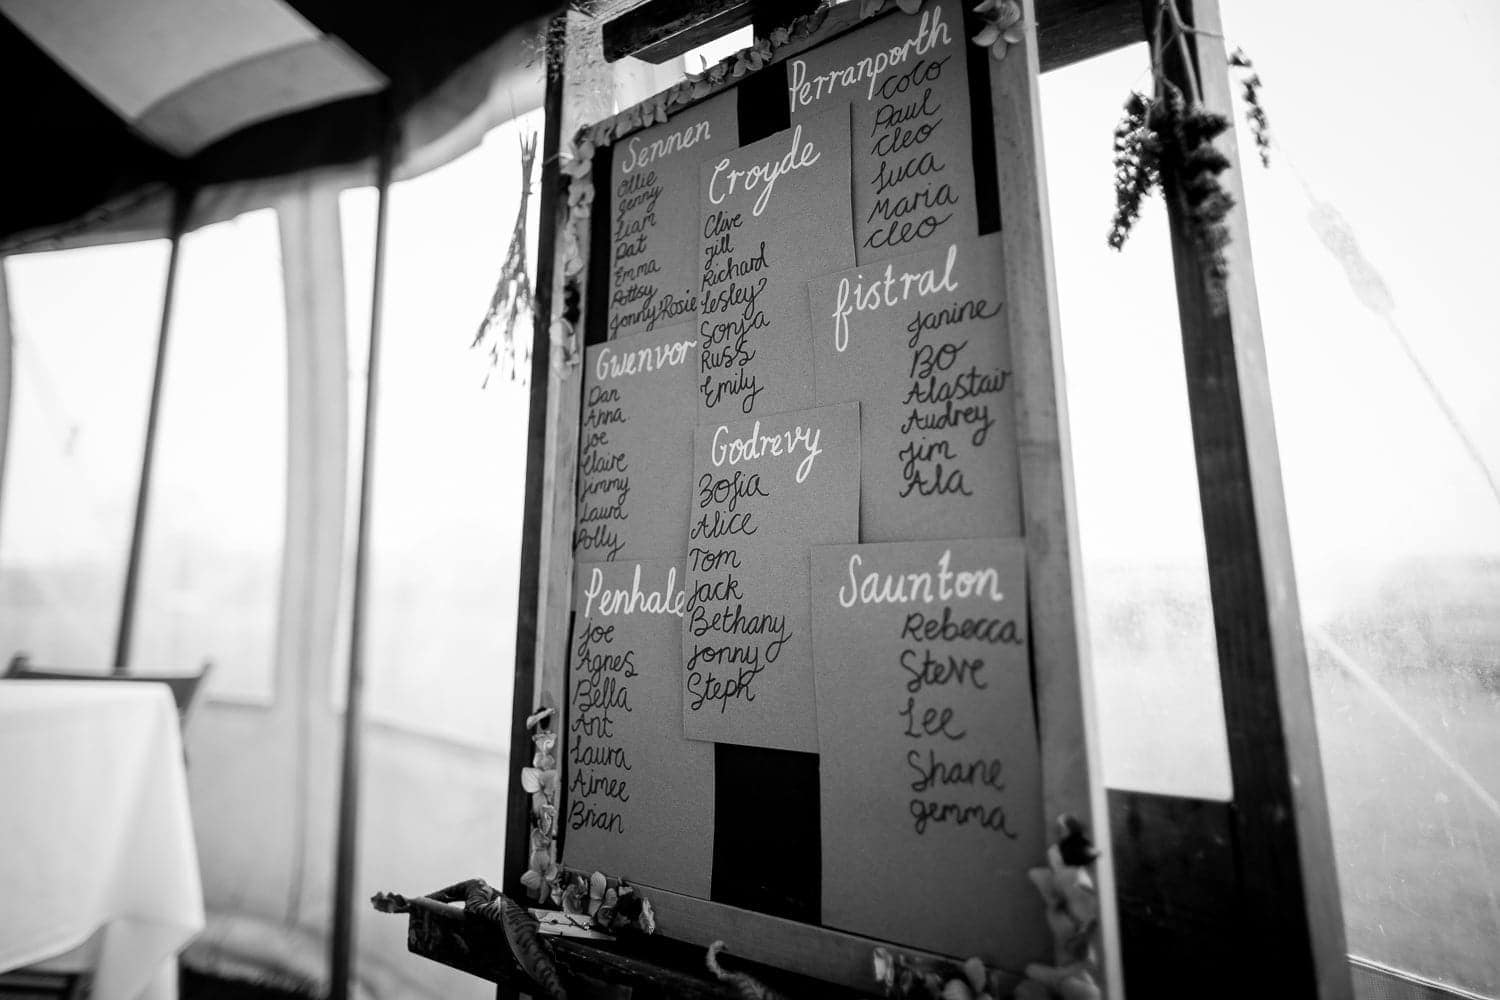 Sennen
Ollie
Jenny
Liam
Pat
Emma
Pottsy
Jonny Rosie
Gwenvor
Dan
Anna
Joe
Claire
Jimmy
Laura
Polly
Penhale
Joe
Agnes
Bella
Ant
Laura
Aimee
Brian
Croyde
Clive
Jill
Richard
Lesley
Sonja
Russ
Emily
Godrevy
Zofia
Alice
Tom
Jack
Bethany
Jonny
Steph
Perranporth
Coco
Paul
Cleo
Luca
Maria
Cleo
fistral
Janine
Bo
Alastair
Audrey
Jim
Ala
Saunton
Rebecca
Steve
Lee
Shane
gemma